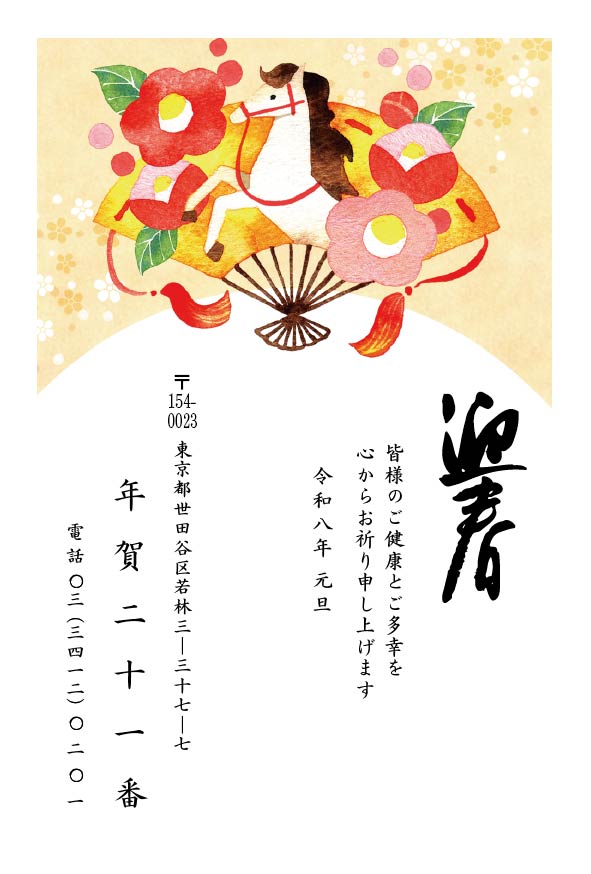 迎春
皆様のご健康とご多幸を
心からお祈り申し上げます
令和八年 元旦
〒154-0023 東京都世田谷区若林三―三十七―七
年賀二十一番
電話〇三(三四一二)〇二〇一